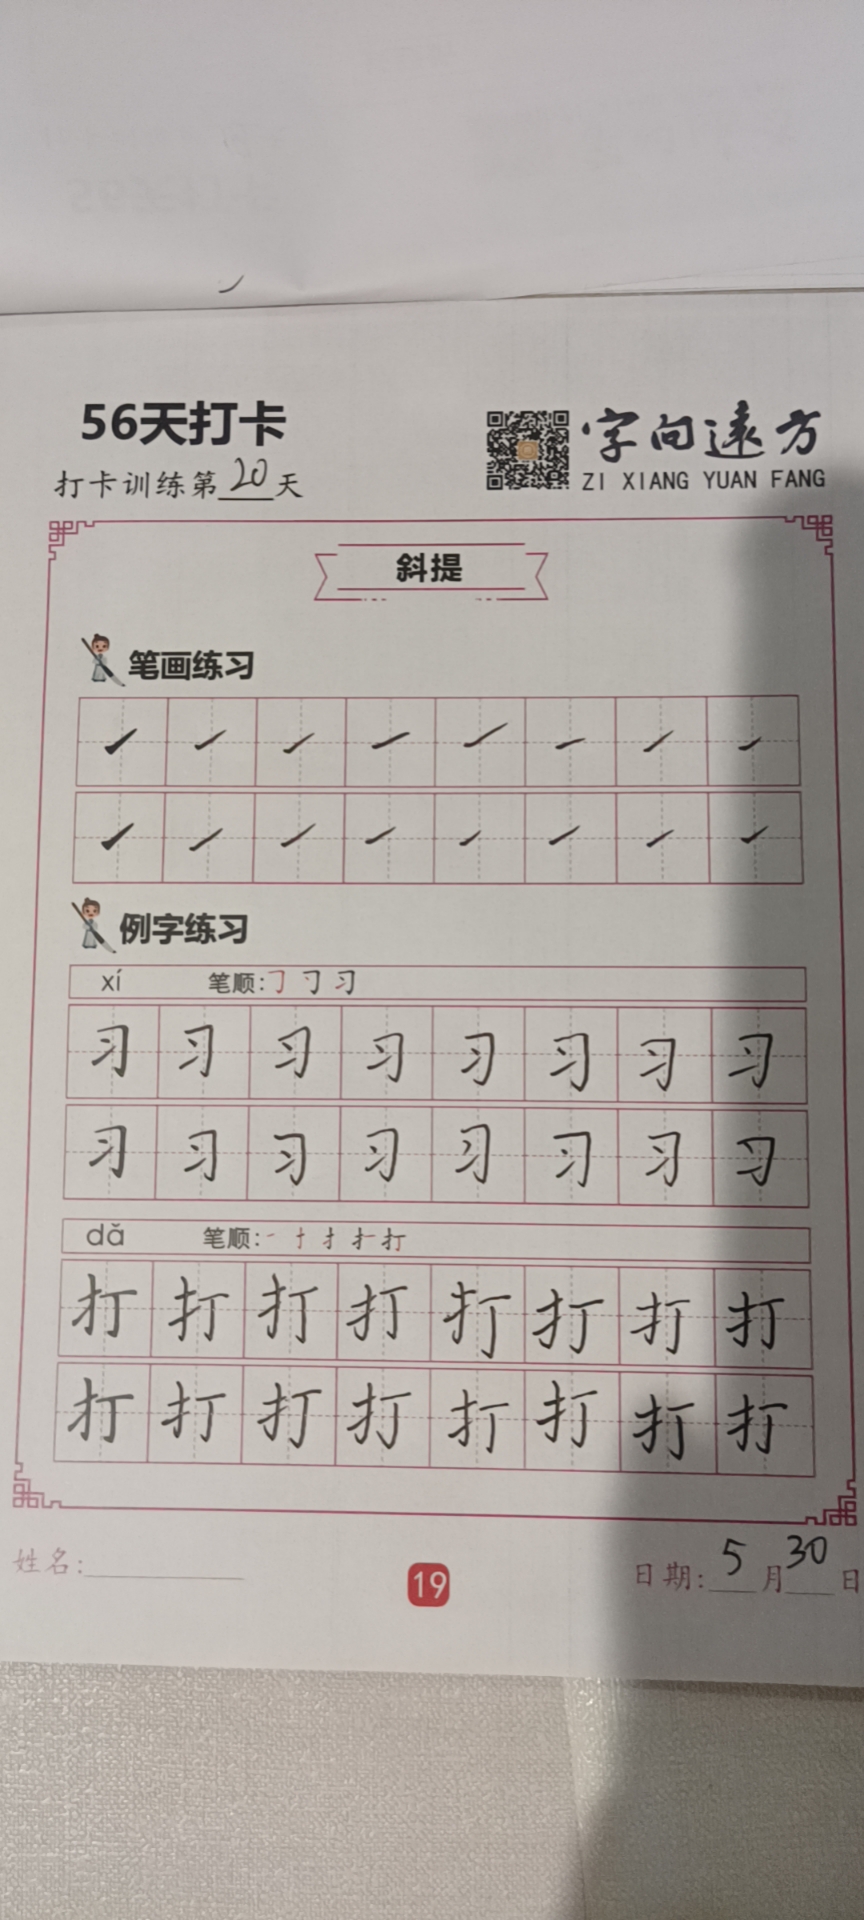 56天打卡
字向遠方
打卡训练第20天
ZI XIANG YUAN FANG
斜提
笔画练习
例字练习
xí 笔顺:
习 习 习 习 习 习 习 习
习 习 习 习 习 习 习 习
dǎ 笔顺:
打 打 打 打 打 打 打 打
打 打 打 打 打 打 打 打
姓名: 19 日期:5月30日